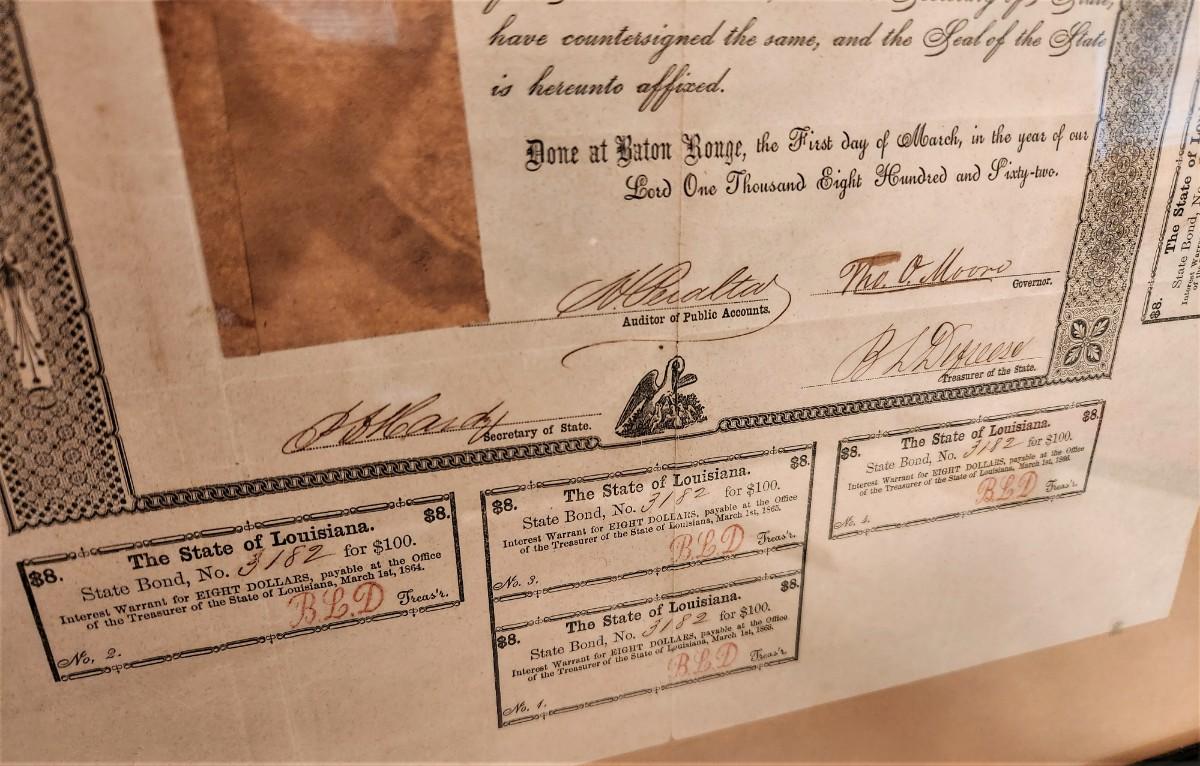 Secretary of State,
have countersigned the same, and the Seal of the State
is hereunto affixed.
Done at Baton Rouge, the First day of March, in the year of our
Lord One Thousand Eight Hundred and Sixty-two.
Auditor of Public Accounts.
Tho. O. Moore
Governor.
B L Defreese
Treasurer of the State.
Hardy
Secretary of State.
$8. $8.
The State of Louisiana.
State Bond, No. 3182 for $100.
Interest Warrant for EIGHT DOLLARS, payable at the Office
of the Treasurer of the State of Louisiana, March 1st, 1864.
B.L.D Treas'r.
No. 2.
$8. $8.
The State of Louisiana.
State Bond, No. 3182 for $100.
Interest Warrant for EIGHT DOLLARS, payable at the Office
of the Treasurer of the State of Louisiana, March 1st, 1865.
B.L.D Treas'r.
No. 3.
$8. $8.
The State of Louisiana.
State Bond, No. 3182 for $100.
Interest Warrant for EIGHT DOLLARS, payable at the Office
of the Treasurer of the State of Louisiana, March 1st,
B.L.D Treas'r.
No. 1.
$8. $8.
The State of Louisiana.
State Bond, No. 3182 for $100.
Interest Warrant for EIGHT DOLLARS, payable at the Office
of the Treasurer of the State of Louisiana, March 1st, 1866.
B.L.D Treas'r.
No. 4.
The State of
State Bond, No
Interest
of
$8.